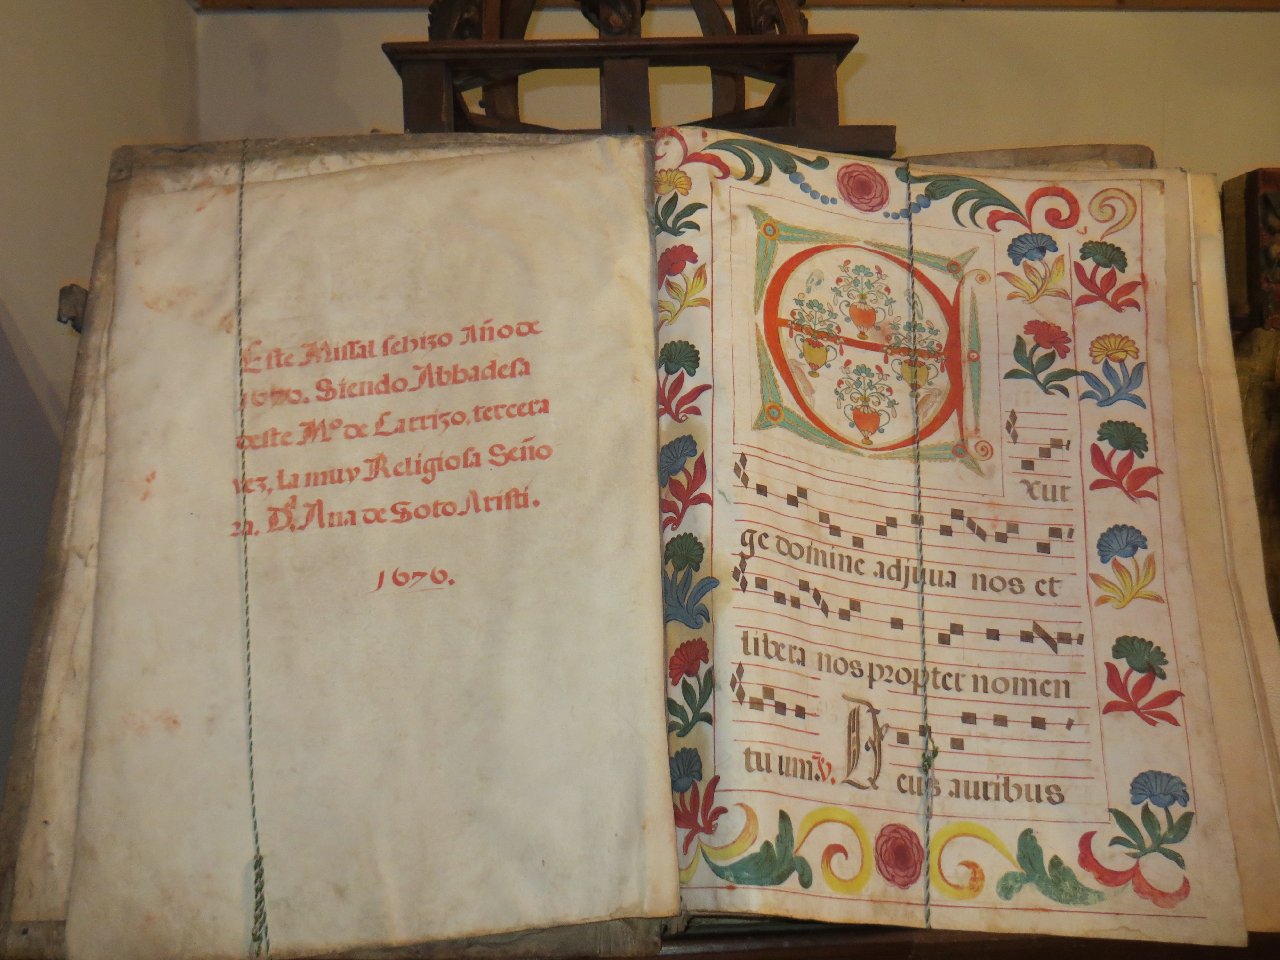 Este Missal sehizo Año de
1676. Siendo Abbadesa
deste Mº de Carrizo, tercera
vez, la muy Religiosa Seño
ra. Dª. Ana de Soto Aristi.
1676.
Exur
ge domine adjuua nos et
libera nos propter nomen
tu um. V. Deus auribus